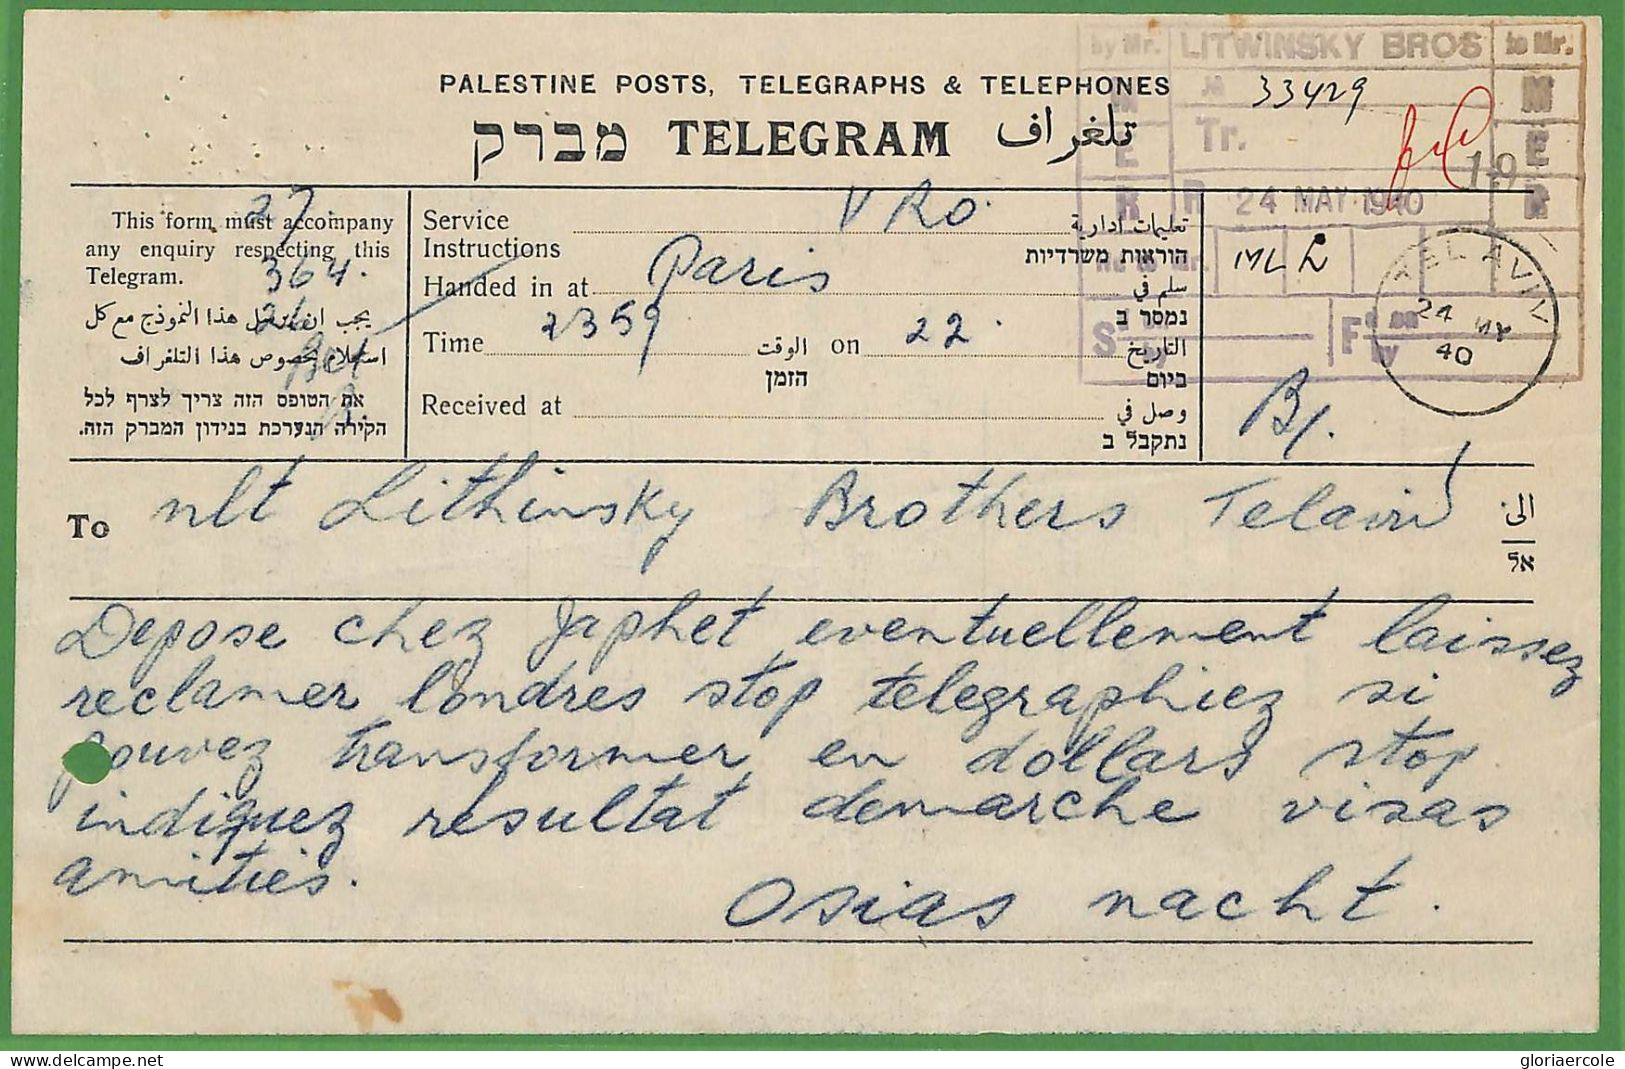 by Mr. LITWINSKY BROS to Mr.
PALESTINE POSTS, TELEGRAPHS & TELEPHONES
33429
מברק TELEGRAM تلغراف
Tr.
19
R 24 MAY 1940
This form must accompany
any enquiry respecting this
Telegram.
27
364.
يجب ان يشمل هذا النموذج مع كل
استعلام بخصوص هذا التلغراف
את הטופס הזה צריך לצרף לכל
חקירה הנערכת בנידון המברק הזה.
Service
Instructions
תعليمات ادارية
הוראות משרדיות
Handed in at Paris سلم في
נמסר ב
Time 2359 الوقت
הזמן
on 22. التاريخ
ביום
Received at وصل في
נתקבל ב
TEL AVIV
24 MY
40
To nlt Lithinsky Brothers Telaviv الى
אל
Depose chez Japhet eventuellement laissez
reclamer londres stop telegraphiez si
pouvez transformer en dollars stop
indiquez resultat demarche visas
amities.
Osias nacht.
gloriaercole